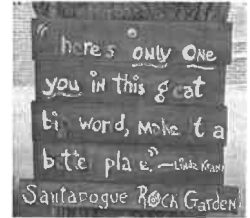 "here's only One
you in this g eat
bi word, Make t a
bette pla e."—Linda Kranz
Santapogue Rock Garden